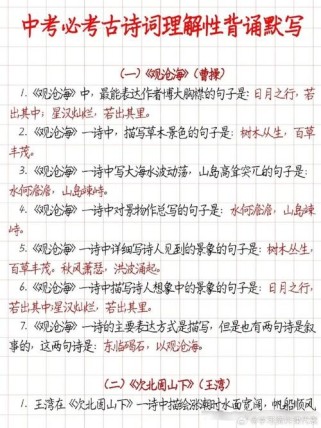 中考必考古诗词理解性背诵默写
（一）《观沧海》（曹操）
1.《观沧海》中，最能表达作者博大胸襟的句子是：日月之行，若
出其中；星汉灿烂，若出其里。
2.《观沧海》一诗中，描写草木景色的句子是：树木丛生，百草
丰茂。
3.《观沧海》一诗中写大海水波动荡，山岛高耸突兀的句子是：
水何澹澹，山岛竦峙。
4.《观沧海》一诗中对景物作总写的句子是：水何澹澹，山岛竦
峙。
5.《观沧海》一诗中详细写诗人见到的景象的句子是：树木丛生，
百草丰茂。秋风萧瑟，洪波涌起。
6.《观沧海》一诗中描写诗人想象中的景象的句子是：日月之行，
若出其中；星汉灿烂，若出其里。
7.《观沧海》一诗的主要表达方式是描写，但是也有两句诗是叙
事的，这两句诗是：东临碣石，以观沧海。
（二）《次北固山下》（王湾）
1.王湾在《次北固山下》一诗中描绘涨潮时水面宽阔，帆船顺风